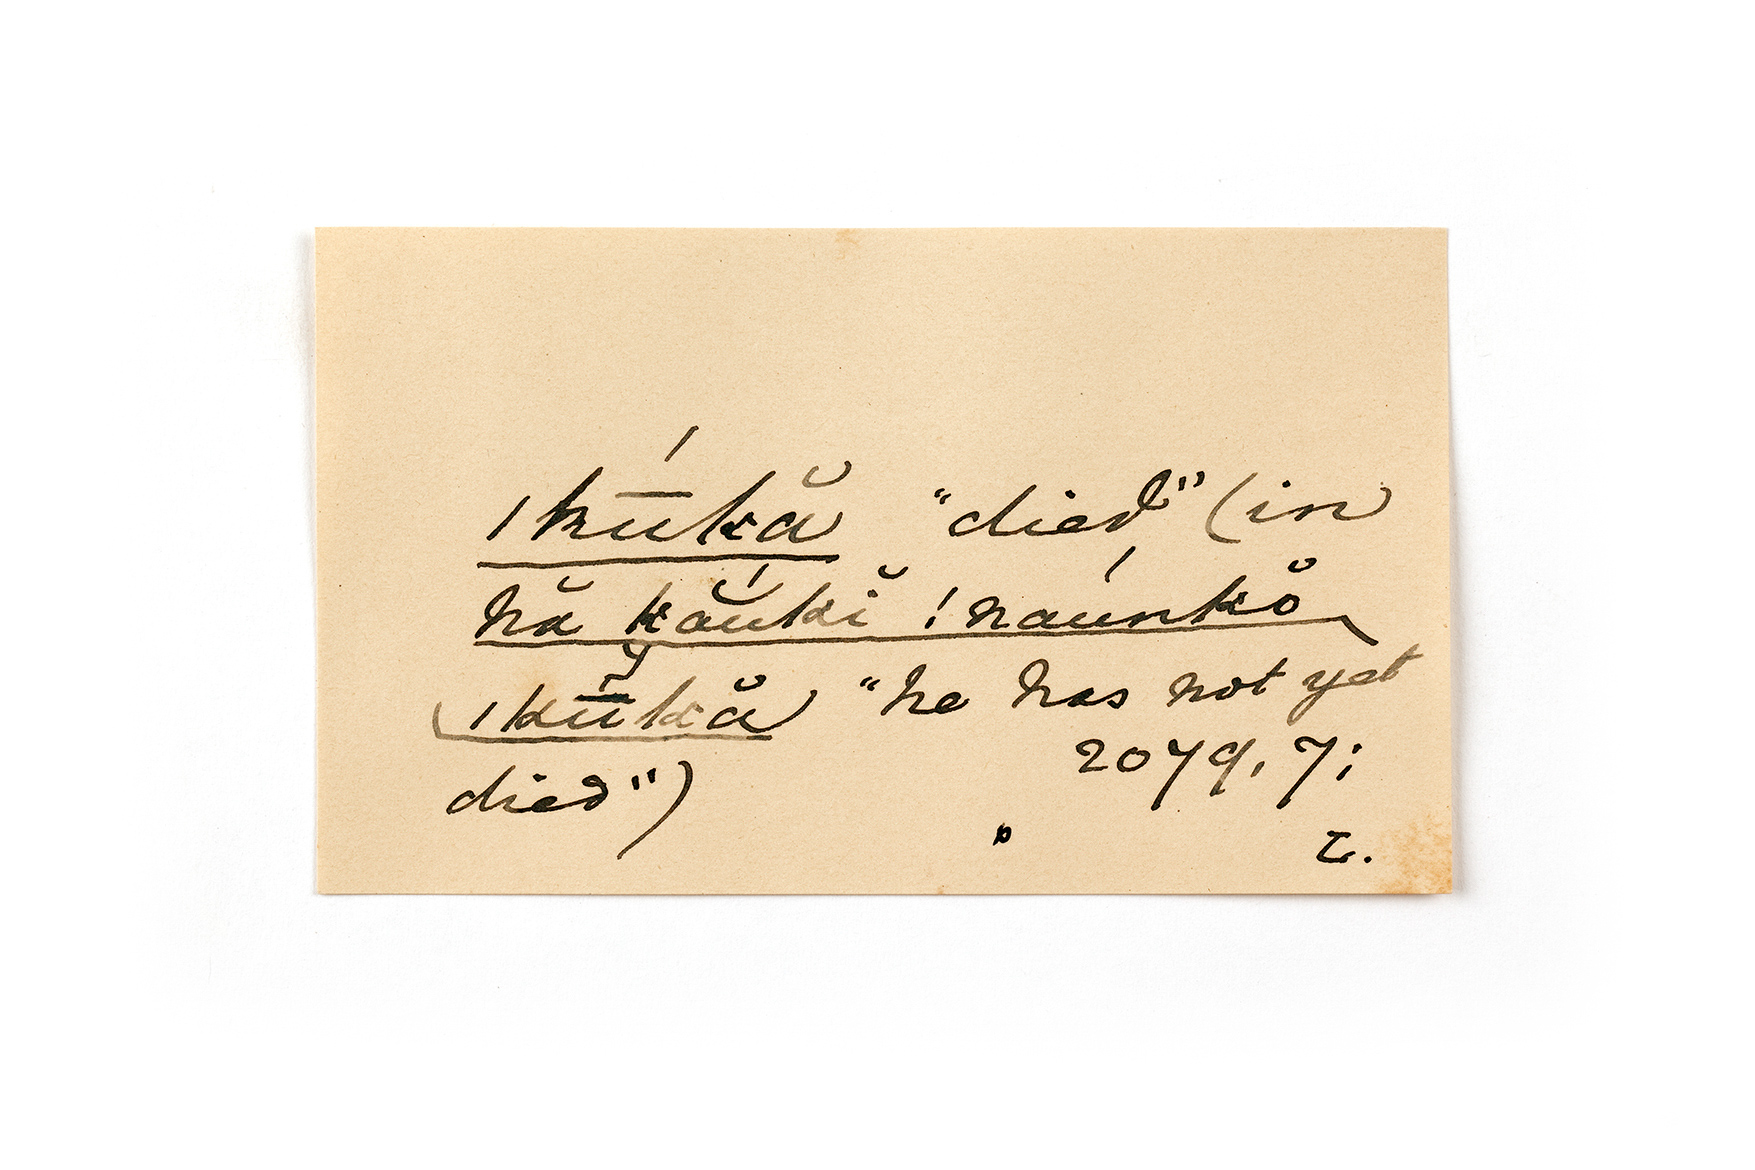 ǀkū́kă "died" (in
hă kắukĭ ! naúnkŏ
ǀkū́kă "he has not yet
died") 2079, 7;
Z.